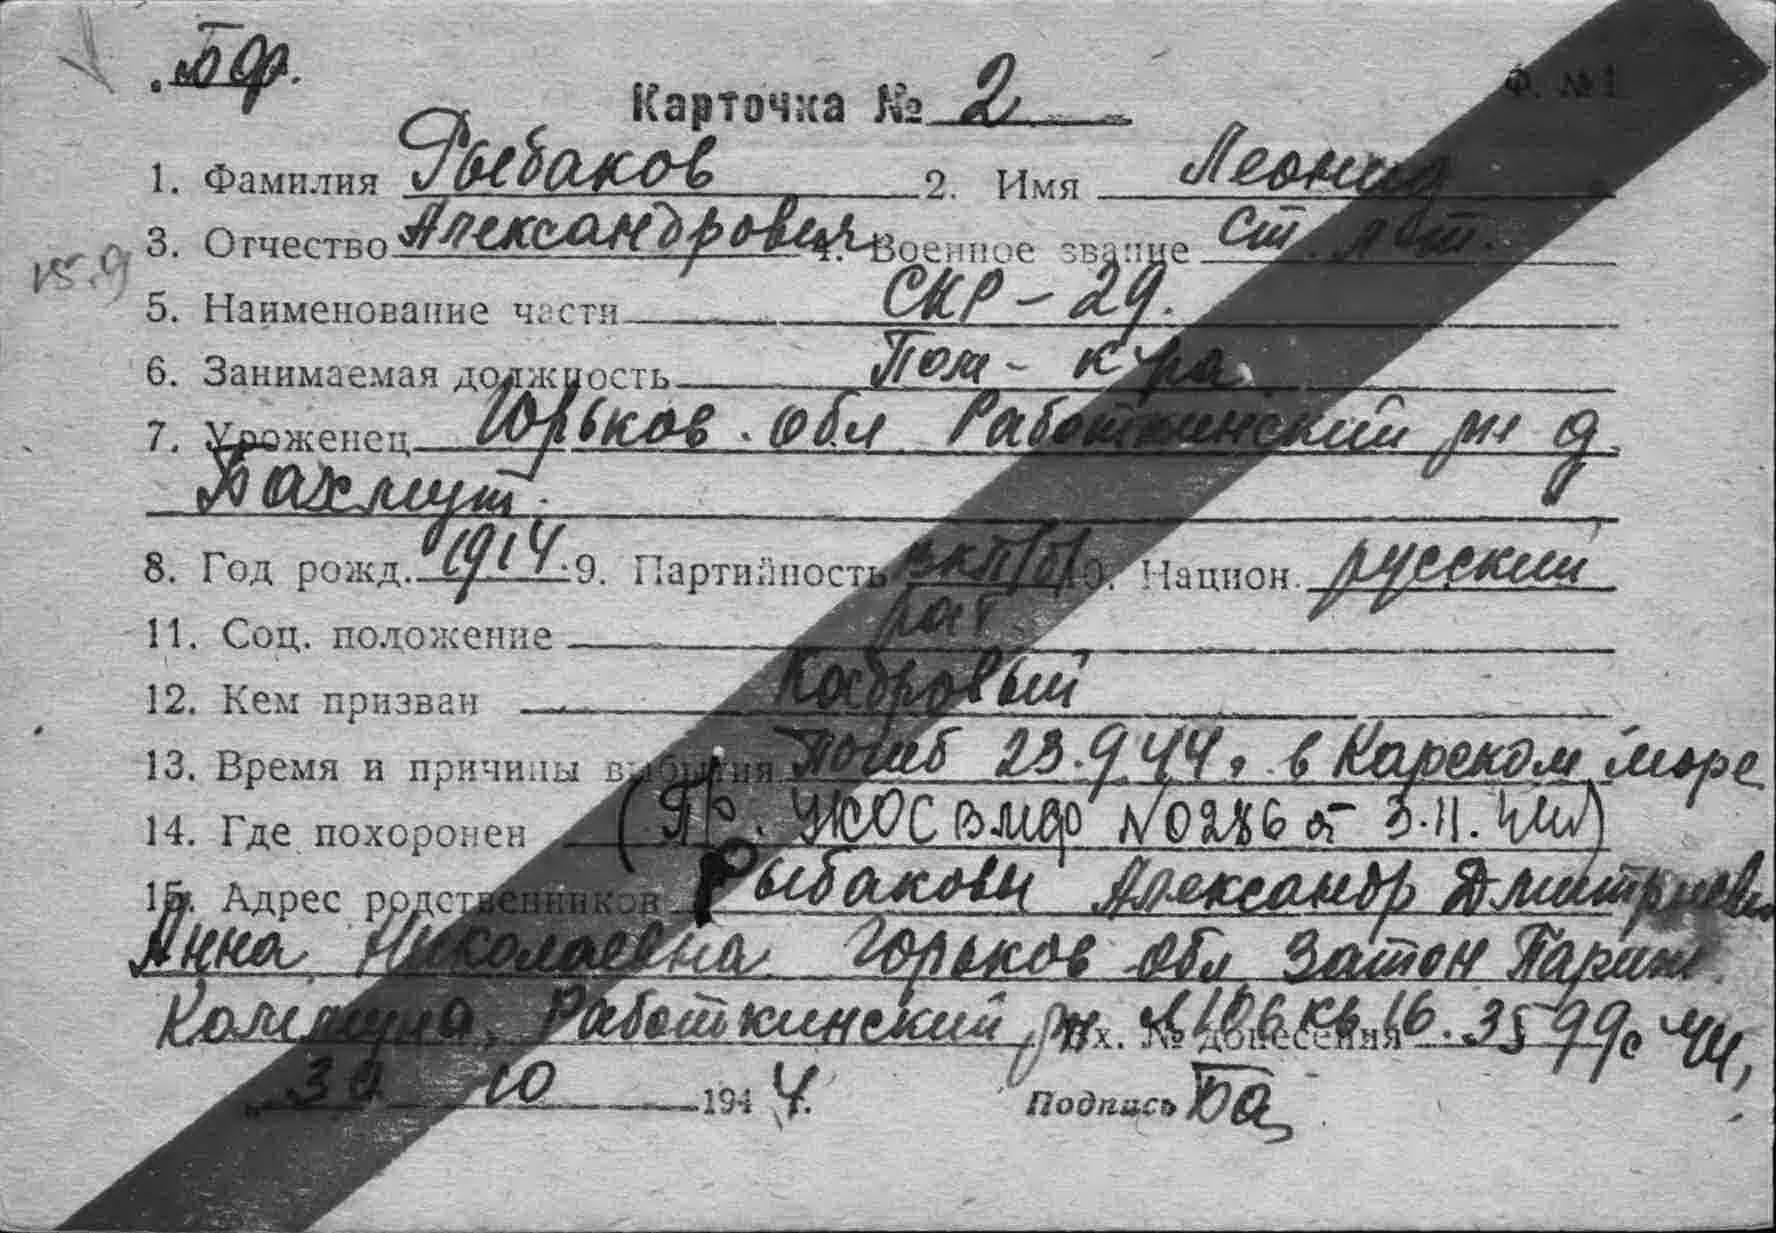 БФ.
Ф. №1
Карточка № 2
1. Фамилия Рыбаков 2. Имя Леонид
3. Отчество Александрович 4. Военное звание ст. л-т.
15.9
5. Наименование части СКР-29.
6. Занимаемая должность Пом- к-ра
7. Уроженец Горьков. обл Работкинский рн д.
Бахмут.
8. Год рожд. 1914. 9. Партийность вкп/б/ 10. Национ. русский
11. Соц. положение раб
12. Кем призван Кадровый
13. Время и причины выбытия Погиб 23.9 44г. в Карском море
14. Где похоронен (Пр. УКОС ВМФ №0286 от 3.11.44г)
15. Адрес родственников Рыбаковы Александр Дмитриеви
Анна Николаевна Горьков обл Затон Париж.
Работкинский рн д 106 кв 16. Вх. № донесения 3599с 44,
30 10 1944. Подпись